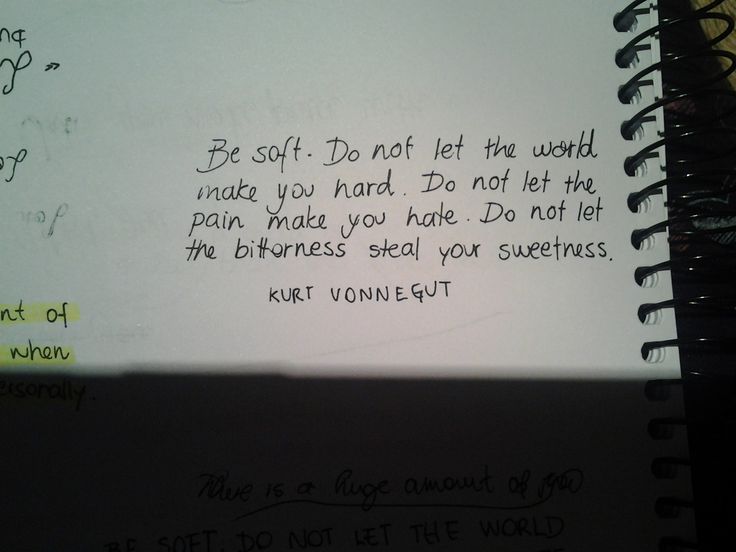 Be soft. Do not let the world
make you hard. Do not let the
pain make you hate. Do not let
the bitterness steal your sweetness.
KURT VONNEGUT
nt of
when
ersonally.
There is a huge amount of
BE SOFT. DO NOT LET THE WORLD